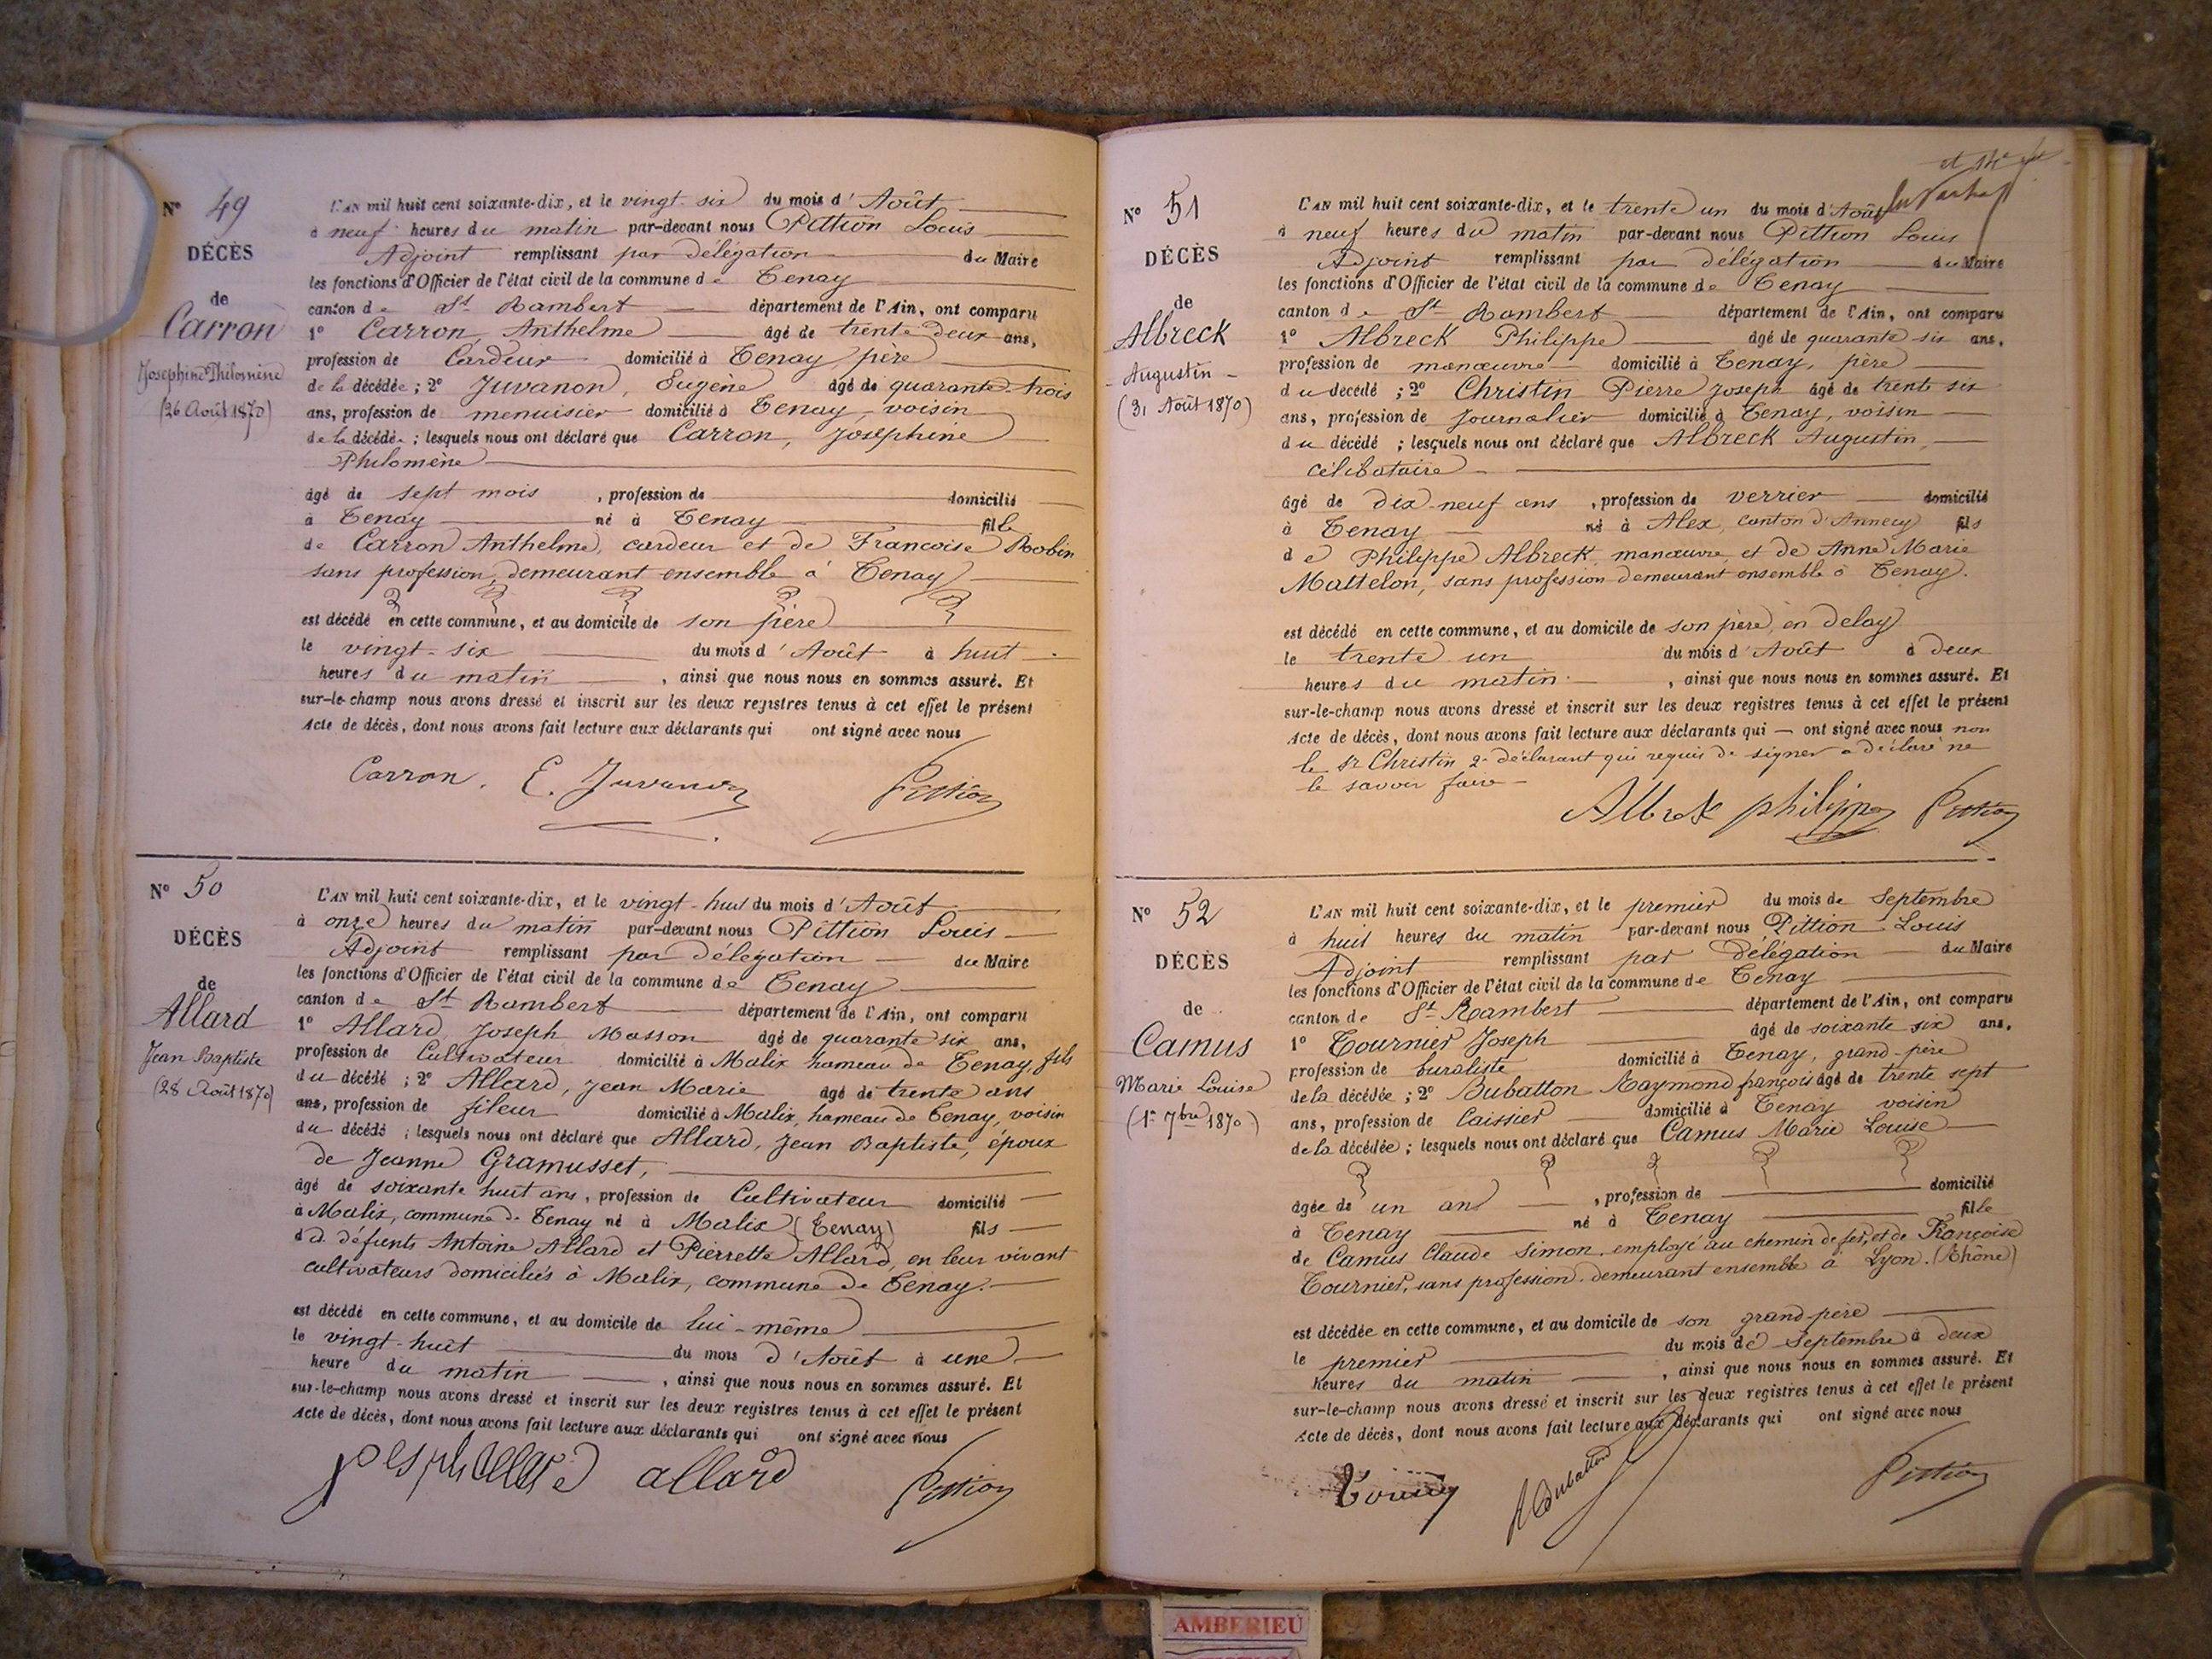 Nº 49
DÉCÈS
de
Carron
Josephine Philomène
(26 Août 1870)
L'AN mil huit cent soixante-dix, et le vingt-six du mois d'Août
à neuf heures du matin par-devant nous Pittion Louis
Adjoint remplissant par délégation du Maire
les fonctions d'Officier de l'état civil de la commune de Tenay
canton de St Rambert département de l'Ain, ont comparu
1º Carron, Anthelme âgé de trente deux ans,
profession de Cardeur domicilié à Tenay, père
de la décédée ; 2º Juvanon, Eugène âgé de quarante-trois
ans, profession de menuisier domicilié à Tenay, voisin
de la décédée ; lesquels nous ont déclaré que Carron, Joséphine
Philomène
âgé de sept mois , profession de domicilié
à Tenay né à Tenay fille
de Carron Anthelme, cardeur et de Françoise Robin
sans profession, demeurant ensemble à Tenay
est décédé en cette commune, et au domicile de son père
le vingt-six du mois d'Août à huit
heures du matin , ainsi que nous nous en sommes assuré. Et
sur-le-champ nous avons dressé et inscrit sur les deux registres tenus à cet effet le présent
Acte de décès, dont nous avons fait lecture aux déclarants qui ont signé avec nous
Carron. E. Juvanon Pittion
Nº 50
DÉCÈS
de
Allard
Jean Baptiste
(28 Août 1870)
L'AN mil huit cent soixante-dix, et le vingt-huit du mois d'Août
à onze heures du matin par-devant nous Pittion Louis
Adjoint remplissant par délégation du Maire
les fonctions d'Officier de l'état civil de la commune de Tenay
canton de St Rambert département de l'Ain, ont comparu
1º Allard, Joseph Masson âgé de quarante six ans,
profession de Cultivateur domicilié à Malix hameau de Tenay, fils
du décédé ; 2º Allard, Jean Marie âgé de trente ans
ans, profession de fileur domicilié à Malix, hameau de Tenay, voisin
du décédé ; lesquels nous ont déclaré que Allard, Jean Baptiste, époux
de Jeanne Gramusset,
âgé de soixante huit ans, profession de Cultivateur domicilié
à Malix, commune de Tenay né à Malix (Tenay) fils
de défunts Antoine Allard et Pierrette Allard, en leur vivant
cultivateurs domiciliés à Malix, commune de Tenay.
est décédé en cette commune, et au domicile de lui-même
le vingt-huit du mois d'Août à une
heure du matin , ainsi que nous nous en sommes assuré. Et
sur-le-champ nous avons dressé et inscrit sur les deux registres tenus à cet effet le présent
Acte de décès, dont nous avons fait lecture aux déclarants qui ont signé avec nous
allard Pittion
Nº 51
DÉCÈS
de
Albreck
Augustin
(31 Août 1870)
L'AN mil huit cent soixante-dix, et le trente un du mois d'Août
à neuf heures du matin par-devant nous Pittion Louis
Adjoint remplissant par délégation du Maire
les fonctions d'Officier de l'état civil de la commune de Tenay
canton de St Rambert département de l'Ain, ont comparu
1º Albreck Philippe âgé de quarante six ans,
profession de manœuvre domicilié à Tenay, père
du décédé ; 2º Christin Pierre Joseph âgé de trente six
ans, profession de Journalier domicilié à Tenay, voisin
du décédé ; lesquels nous ont déclaré que Albreck Augustin,
célibataire
âgé de dix-neuf ans , profession de verrier domicilié
à Tenay né à Alex, canton d'Annecy fils
de Philippe Albreck, manœuvre, et de Anne Marie
Mattelon, sans profession demeurant ensemble à Tenay.
est décédé en cette commune, et au domicile de son père, en delay
le trente un du mois d'Août à deux
heures du matin , ainsi que nous nous en sommes assuré. Et
sur-le-champ nous avons dressé et inscrit sur les deux registres tenus à cet effet le présent
Acte de décès, dont nous avons fait lecture aux déclarants qui — ont signé avec nous non
le Sr Christin 2e déclarant qui requis de signer a déclaré ne
le savoir faire
Albreck philippe Pittion
Nº 52
DÉCÈS
de
Camus
Marie Louise
(1er 7bre 1870)
L'AN mil huit cent soixante-dix, et le premier du mois de Septembre
à huit heures du matin par-devant nous Pittion Louis
Adjoint remplissant par délégation du Maire
les fonctions d'Officier de l'état civil de la commune de Tenay
canton de St Rambert département de l'Ain, ont comparu
1º Tournier Joseph âgé de soixante six ans,
profession de buraliste domicilié à Tenay, grand-père
de la décédée ; 2º Bubatton Raymond françois âgé de trente sept
ans, profession de Caissier domicilié à Tenay voisin
de la décédée ; lesquels nous ont déclaré que Camus Marie Louise
âgée de un an , profession de domicilié
à Tenay né à Tenay fille
de Camus Claude Simon, employé au chemin de fer, et de Françoise
Tournier, sans profession, demeurant ensemble à Lyon. (Rhône)
est décédée en cette commune, et au domicile de son grand-père
le premier du mois de Septembre à deux
heures du matin , ainsi que nous nous en sommes assuré. Et
sur-le-champ nous avons dressé et inscrit sur les deux registres tenus à cet effet le présent
Acte de décès, dont nous avons fait lecture aux déclarants qui ont signé avec nous
Pittion
AMBERIEU